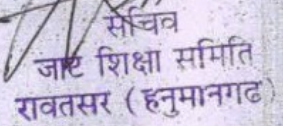 सचिव
जाट शिक्षा समिति
रावतसर (हनुमानगढ)